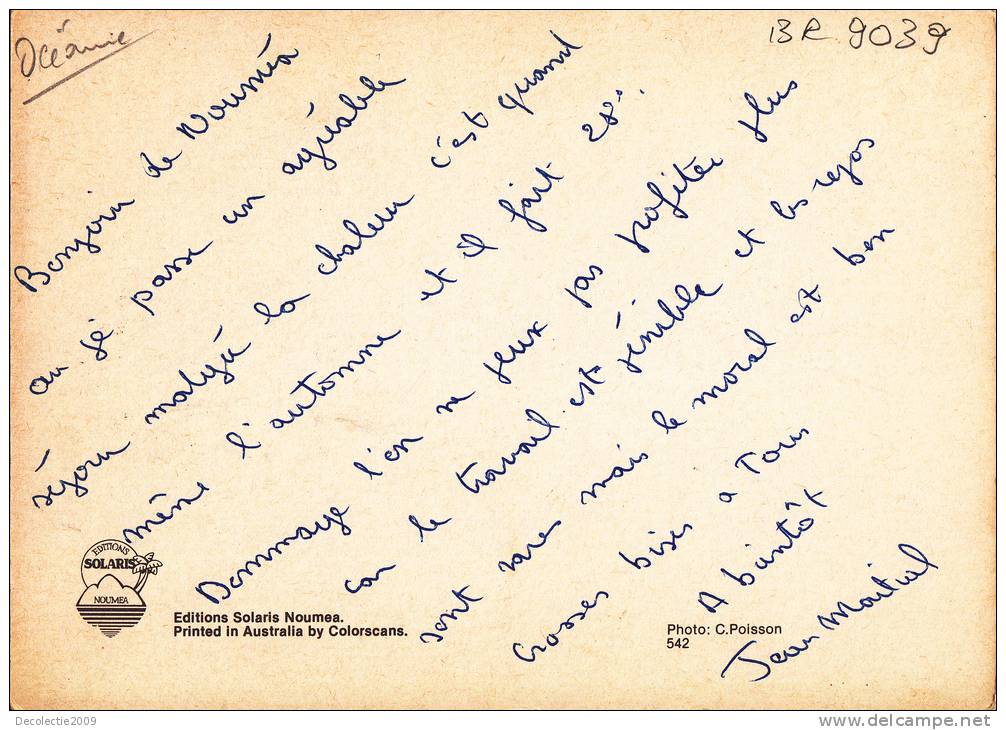 Océanie
BR 9039
Bonjour de Nouméa
ou sé passe un agréable
séjour malgré la chaleur c'est quand
même l'automne et il fait 28°.
Dommage l'on ne peux pas profiter plus
car le travail est pénible et les repos
sont rares mais le moral est bon
Grosses bises à Tous
A bientôt
Jean Martial
EDITIONS
SOLARIS
NOUMEA
Editions Solaris Noumea.
Printed in Australia by Colorscans.
Photo: C.Poisson
542
Decolectie2009
www.delcampe.net